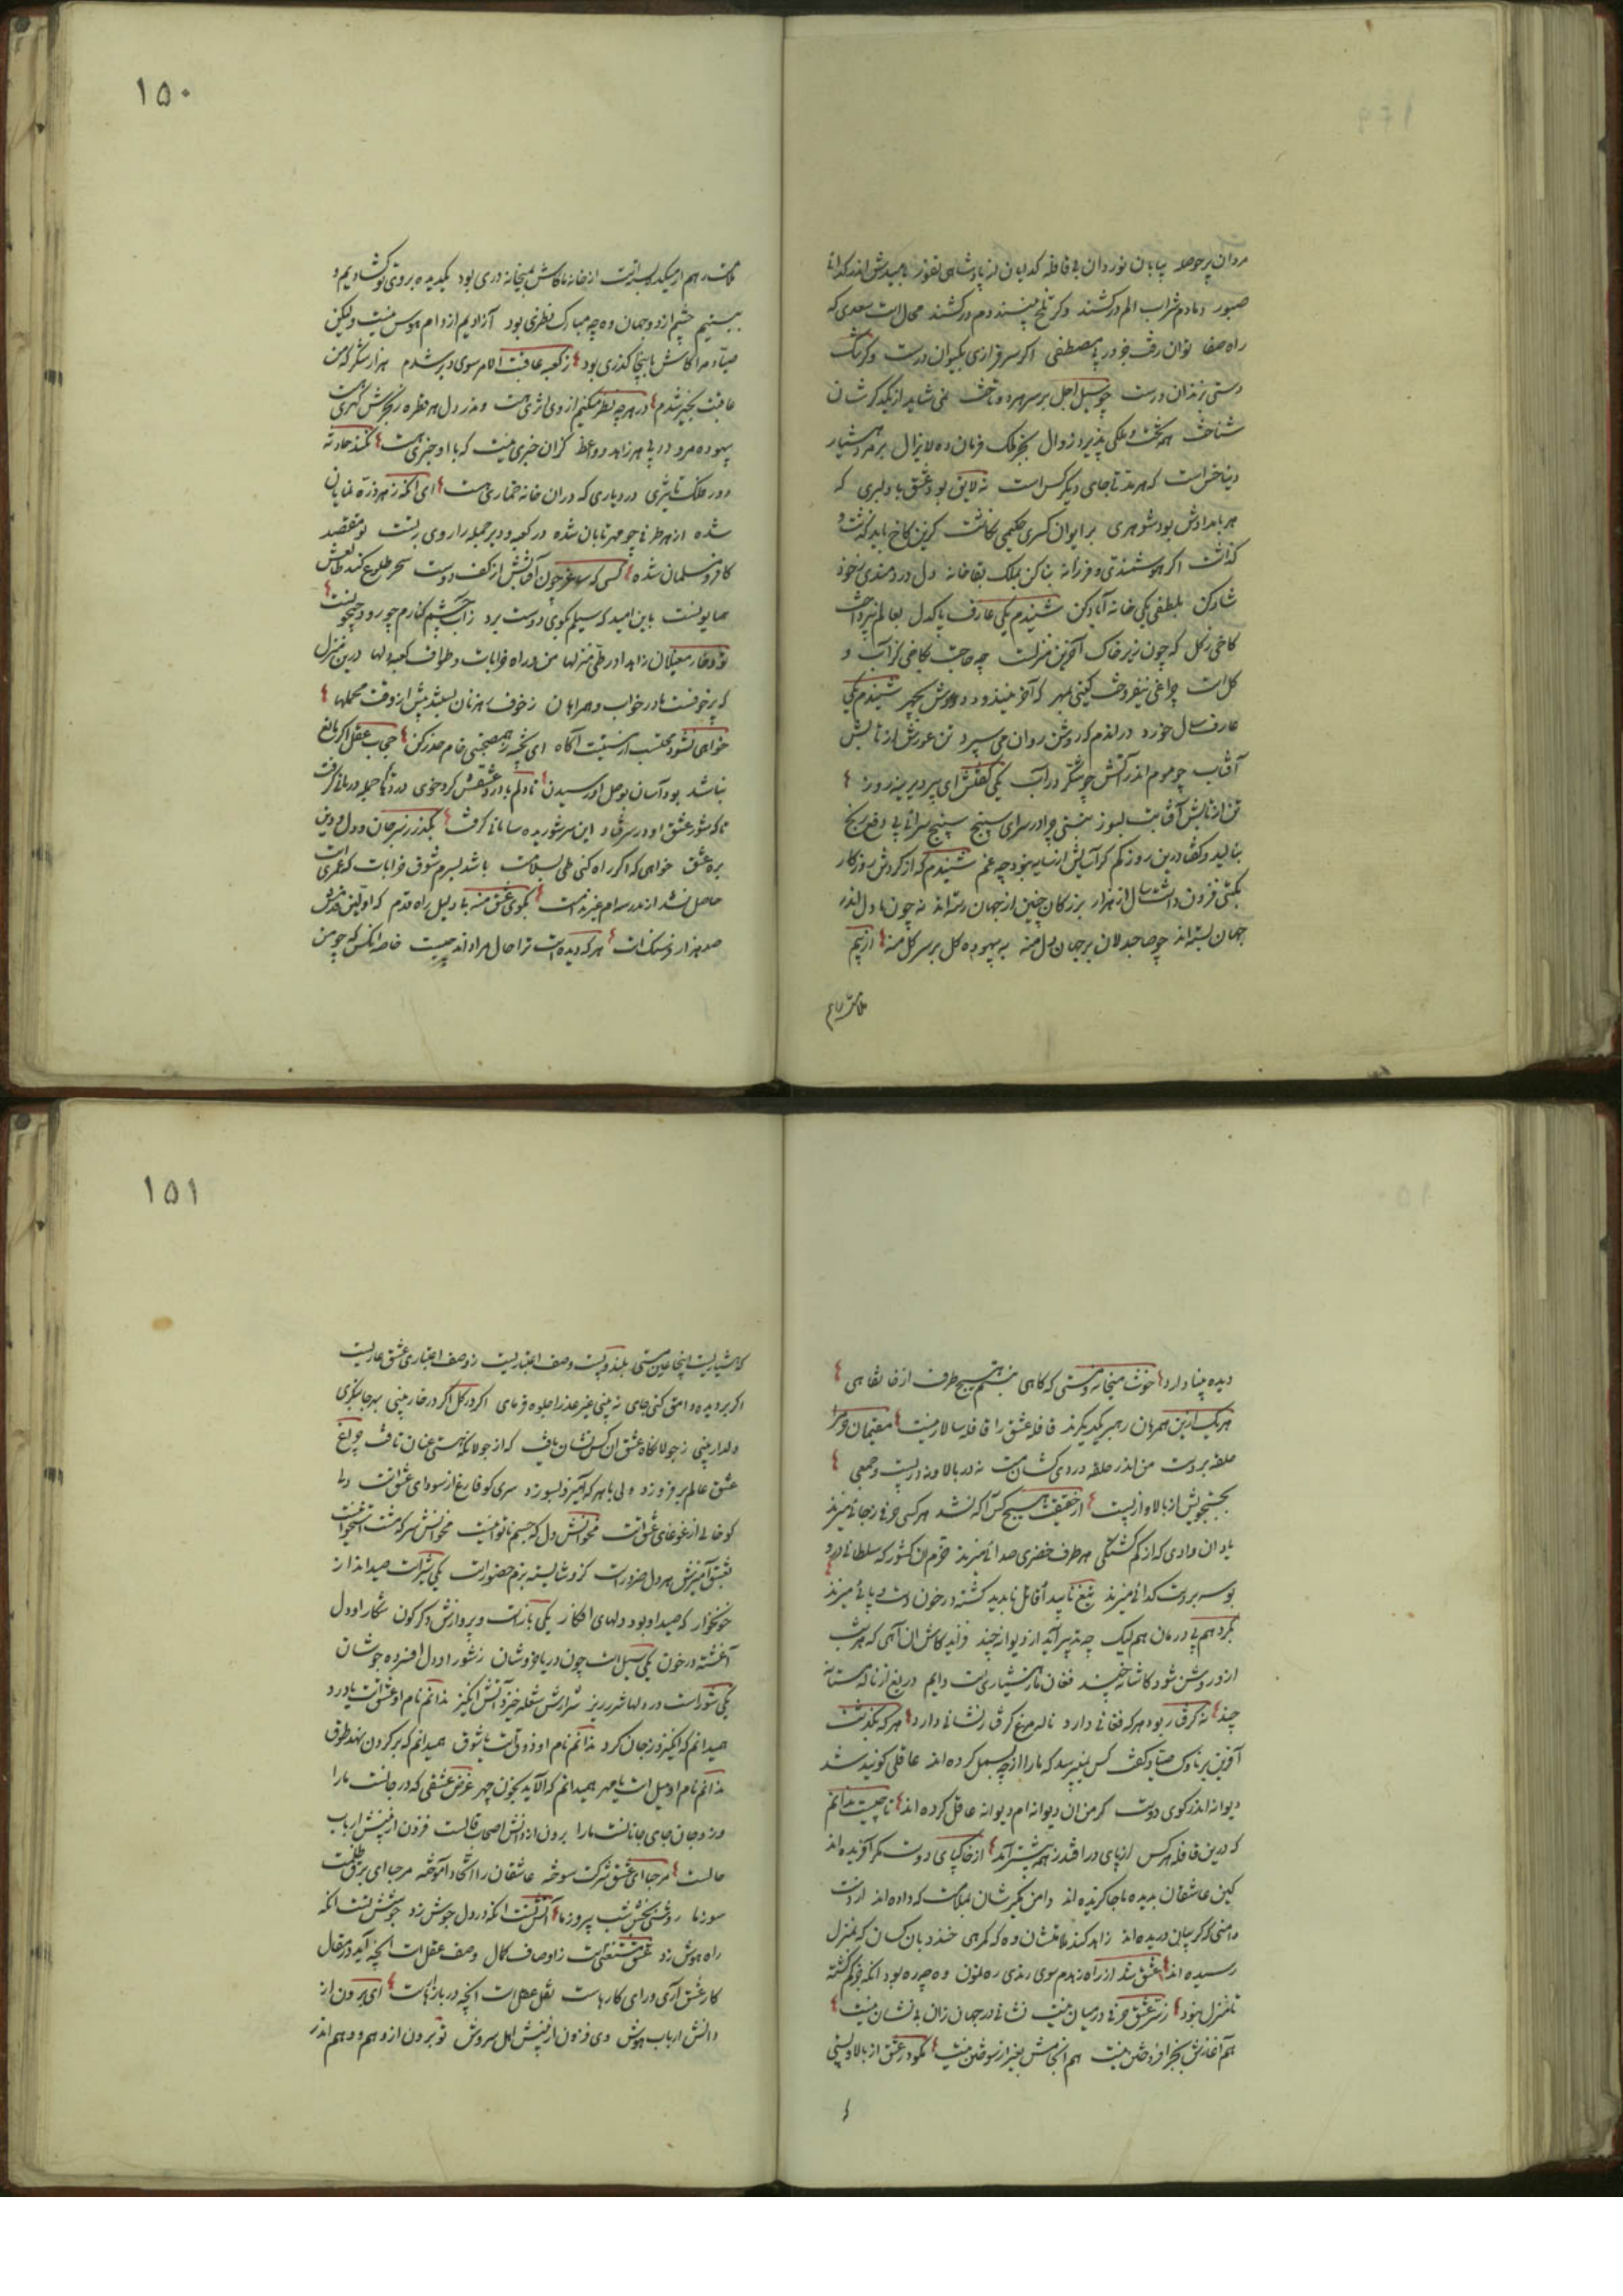 مردان پر حوصله بیابان نوردان بی قافله گدایان از پادشاهی نفور بامیدش اندر گدائی
صبور دمادم شراب الم درکشند وگر تلخ بینند دم درکشند محال است سعدی که
راه صفا توان رفت جز در پی مصطفی اگر سرفرازی بکیوان درست وگر تنگ
دستی بزندان درست چو سیل اجل بر سر هر دو تاخت نمی شاید از یکدگرشان
شناخت همه تخت و ملکی پذیرد زوال بجز ملک فرمان ده لایزال بر مرد هشیار
دنیا خس است که هر مدتی جای دیگر کس است نه لایق بود عشق با دلبری که
هر بامدادش بود شوهری بر ایوان کسری حکیمی نگاشت کزین کاخ باید گذشت و
گذاشت اگر هوشمندی و فرزانه بنا کن بملک بقا خانه دل دردمندی ز خود
شاد کن بلطفی یکی خانه آباد کن شنیدم یکی عارف پاکدل بعالم نپرداخت
کاخی ز گل که چون زیر خاک آخرین منزلست چه حاجت بکاخی کز آب و
گل است چراغی نیفروخت گیتی بمهر که آخر نیندود دودش بچهر شنیدم یکی
عارف سال خورد در اندم که روشن روان می سپرد تن عورش از تابش
آفتاب چو موم اندر آتش چو شکر در آب یکی گفتش ای پیر دیرینه روز
تن از تابش آفتابت بسوز ببستی چرا در سرای سپنج سپنج سرائی پی دفع رنج
بنالید و گفت اندرین روز کم گر آسایش از سایه نبود چه غم شنیدم که از گردش روزگار
بگیتی فزون داشت سال از هزار بزرگان چنین از جهان رسته اند نه چون ما دل اندر
جهان بسته اند چو صاحبدلان بر جهان دل منه به بیهوده گل بر سر گل منه از بیم
ملامت رهم
۱۵۰
ملامت رهم از میکده بسته است از خانه ما کاش بمیخانه دری بود یکدیده بروی تو گشادیم و
ببستیم چشم از دو جهان وه چه مبارک نظری بود آزادیم از دام هوس نیست ولیکن
صیاد مرا کاش باینجا گذری بود ز کعبه عاقبت الامر سوی دیر شدم هزار شکر که من
عاقبت بخیر شدم در هرچه نظر میکنم از وی اثری هست
بیهوده مرو در پی هر زاهد و واعظ کزان خبری نیست که با او خبری هست نکند حادثه
دور فلک تأثیری در دیاری که در آن خانه خماری هست ای آنکه ز هر ذره نمایان
شده از هر طرفی چو مهر تابان شده در کعبه و دیر جمله را روی بتست تو مقصد
کافر و مسلمان شده کسی که ساغر چون آفتابش از کف دوست سحر طلوع کند
همایونست باین امید که سیلم بکوی دوست برد ز آب چشم کنارم چو رود جیحونست
تو و خار مغیلان زاهدا در طی منزلها من و راه خرابات و طواف کعبه دلها درین منزل
که پر خوفست ما در خواب و همراهان ز خوف رهزنان بستند پیش از وقت محملها
خواهی نشود محتسب از نیت آگاه ای پخته ز همصحبتی خام حذر کن حجاب عقل اگر مانع
نباشد بود آسان بوصل او رسیدن تا دلم با درد عشقش کرد خوی دردها جمله درمانی گرفت
تا که شور عشق او در سر فتاد این سر شوریده سامانی گرفت بگذر ز سر جان و دل و دین
بره عشق خواهی که اگر راه کنی طی بسلامت باشد بسرم شوق خرابات که عمریست
حاصل نشد از مدرسه ام غیر ندامت بکوی عشق منه بی دلیل راه قدم که اولین
صد هزار فرسنگ است هرکه دیده است ترا حال مرا داند چیست خاصه آنکس که چو من
دیده بینا دارد خوشا میخانه و مستی که گاهی نبندیم هیچ طرف از خانقاهی
هر یک از این همرهان رهبر یکدیگرند قافله عشق را قافله سالار نیست مقیمان حرم
حلقه بر در است من اندر حلقه دردی کشان مست نه در بالا و نه در پست و جمعی
بجستجویش از بالا و از پست از حقیقت هیچ کس آگه نشد هر کسی حرفی ز جائی میزند
یا در آن وادی که از گم گشتگی هر طرف خضری صدائی میزند خرم آن کشور که سلطانی درو
بوسه بر دست گدائی میزند تیغ ناپیدا و قاتل ناپدید کشته در خون دست و پائی میزند
بگردم پی درمان هم لیک چه تدبیر آید از دیوانه چند فزاید کاش آن آهی که هر شب
از او روشن شود کاشانه چند فغان ما ز هشیاریست دایم دریغ از ناله مستانه
چند نه گرفتار بود هرکه فغانی دارد ناله مرغ گرفتار نشانی دارد هرکه بگذشت
آفرین بر ناوک صیاد گفت کس نپرسید که ما را از چه بسمل کرده اند عاقلی گویند شد
دیوانه اندر کوی دوست گر من آن دیوانه ام دیوانه عاقل کرده اند تا چیست ندانم
که درین قافله هر کس از پای در افتد ز همه پیشتر آید از خاک پای دوست مگر آفریده اند
کین عاشقان بدیده ما جا گزیده اند دامن نگیرشان بملامت که داده اند از دست
دامنی که گریبان دریده اند زاهد کند ملامتشان وه که گمرهی خندد بآن کسان که بمنزل
رسیده اند عشق شد از راه زهدم سوی رندی رهنمون وه چه ره بود آنکه جز گم گشته
تا منزل نبود ز سر عشق حرفی در میان نیست نشانی در جهان زان بی نشان نیست
هم آغازش بجز افروختن نیست هم انجامش بغیر از سوختن نیست نگنجد در عشق از بالا و پستی
۱۵۱
که هشیاریست اینجا عین مستی بلند و پست وصف اعتباریست ز وصف اعتباری عشق عاریست
اگر بر دیده وامق کنی جای نه بینی غیر عذرا جلوه فرمای اگر در گل اگر در خار بینی بهر جا بنگری
دلدار بینی ز جولانگاه عشق آن کس نشان یافت که از جولانگه هستی عنان تافت چراغ
عشق عالم برفروزد ولی با هرکه آمیزد بسوزد سری کو فارغ از سودای عشق است دلی
کو خالی از غوغای عشق است مخوانش دل که جسم ناتوانیست مخوانش سر که مشت استخوانیست
بعشق آمیزش هر دل ضرور است کزو شایسته بزم حضور است یکی شیر است صید انداز
خونخوار که صید او بود دلهای افکار یکی باز است و پروازش دگرگون شکار او دل
آغشته در خون یکی سیل است چون دریا خروشان ز شور او دل افسرده جوشان
یکی شور است در دلها شرر ریز شرارش شعله خیز و آتش انگیز ندانم نام او عشق است یا درد
همیدانم که انگیزد ز جان گرد ندانم نام او ذوق است یا شوق همیدانم که بر گردن نهد طوق
ندانم نام او میل است یا مهر همیدانم که آلاید بخون چهر غرض عشقی که در جانست ما را
وزو جان جای جانانست ما را برون از دانش اصحاب قالست فزون از بینش ارباب
حالست مرحبا ای عشق شرکت سوخته عاشقان را اتحاد آموخته مرحبا ای برق ظلمت
سوز ما روشنی بخش شب پیروز ما آتش است آنکه در دل جوش زد جوشش تست آنکه
راه هوش زد عشق مستغنی است ز اوصاف کمال وصف عقل است آنچه آید در مقال
کار عشق آری ورای کارهاست نقل عقل است آنچه در بازارهاست ای برون از
دانش ارباب هوش وی فزون از بینش اهل سروش تو برون از وهم و وهم اندر